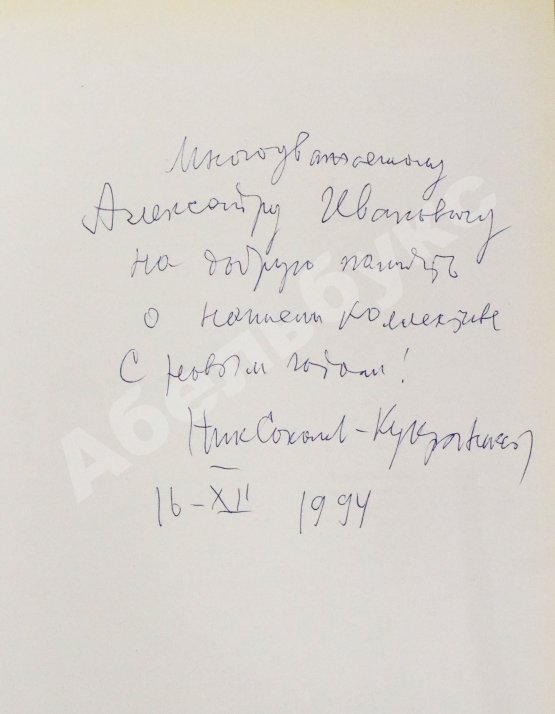 Многоуважаемому
Александру Ивановичу
на добрую память
о нашем коллективе
С новым годом!
Ник Соколов-Кукрыниксы
16-XII 1994
Абельбукс